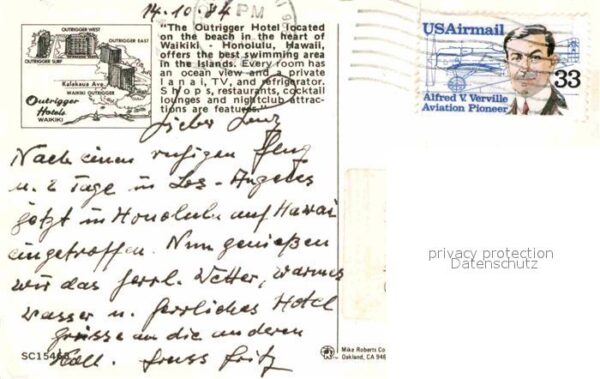 14.10.84
PM
"The Outrigger Hotel located
on the beach in the heart of
Waikiki - Honolulu, Hawaii,
offers the best swimming area
in the Islands. Every room has
an ocean view and a private
lanai, TV, and refrigerator.
Shops, restaurants, cocktail
lounges and nightclub attrac-
tions are features."
OUTRIGGER WEST
OUTRIGGER EAST
OUTRIGGER SURF
Kalakaua Ave.
WAIKIKI OUTRIGGER
Outrigger
Hotels
WAIKIKI
USAirmail
33
Alfred V. Verville
Aviation Pioneer
Lieber
Nach einem ruhigen Flug
u. 2 Tage in Los-Angeles
jetzt in Honolulu auf Hawai
eingetroffen. Nun genießen
wir das herrl. Wetter, warmes
Wasser u. herrliches Hotel
Grüsse an die anderen
Koll. Gruss Fritz
privacy protection
Datenschutz
SC154
Mike Roberts Co
Oakland, CA 946